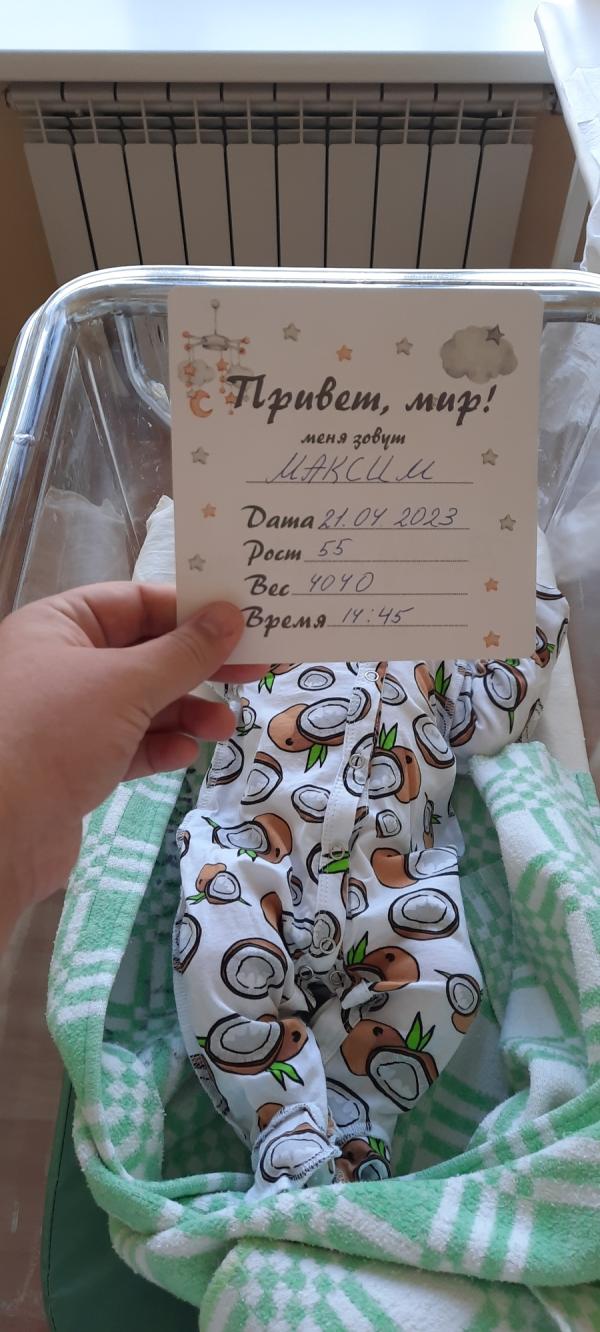 Привет, мир!
меня зовут
МАКСИМ
Дата 21.04 2023
Рост 55
Вес 4040
Время 14:45